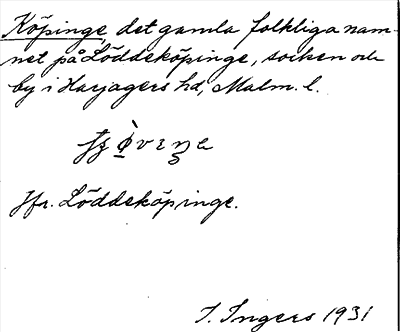 Köpinge, det gamla folkliga nam-
net på Löddeköpinge, socken och
by i Harjagers hd, Malm. l.
Jfr. Löddeköpinge.
I. Ingers 1931